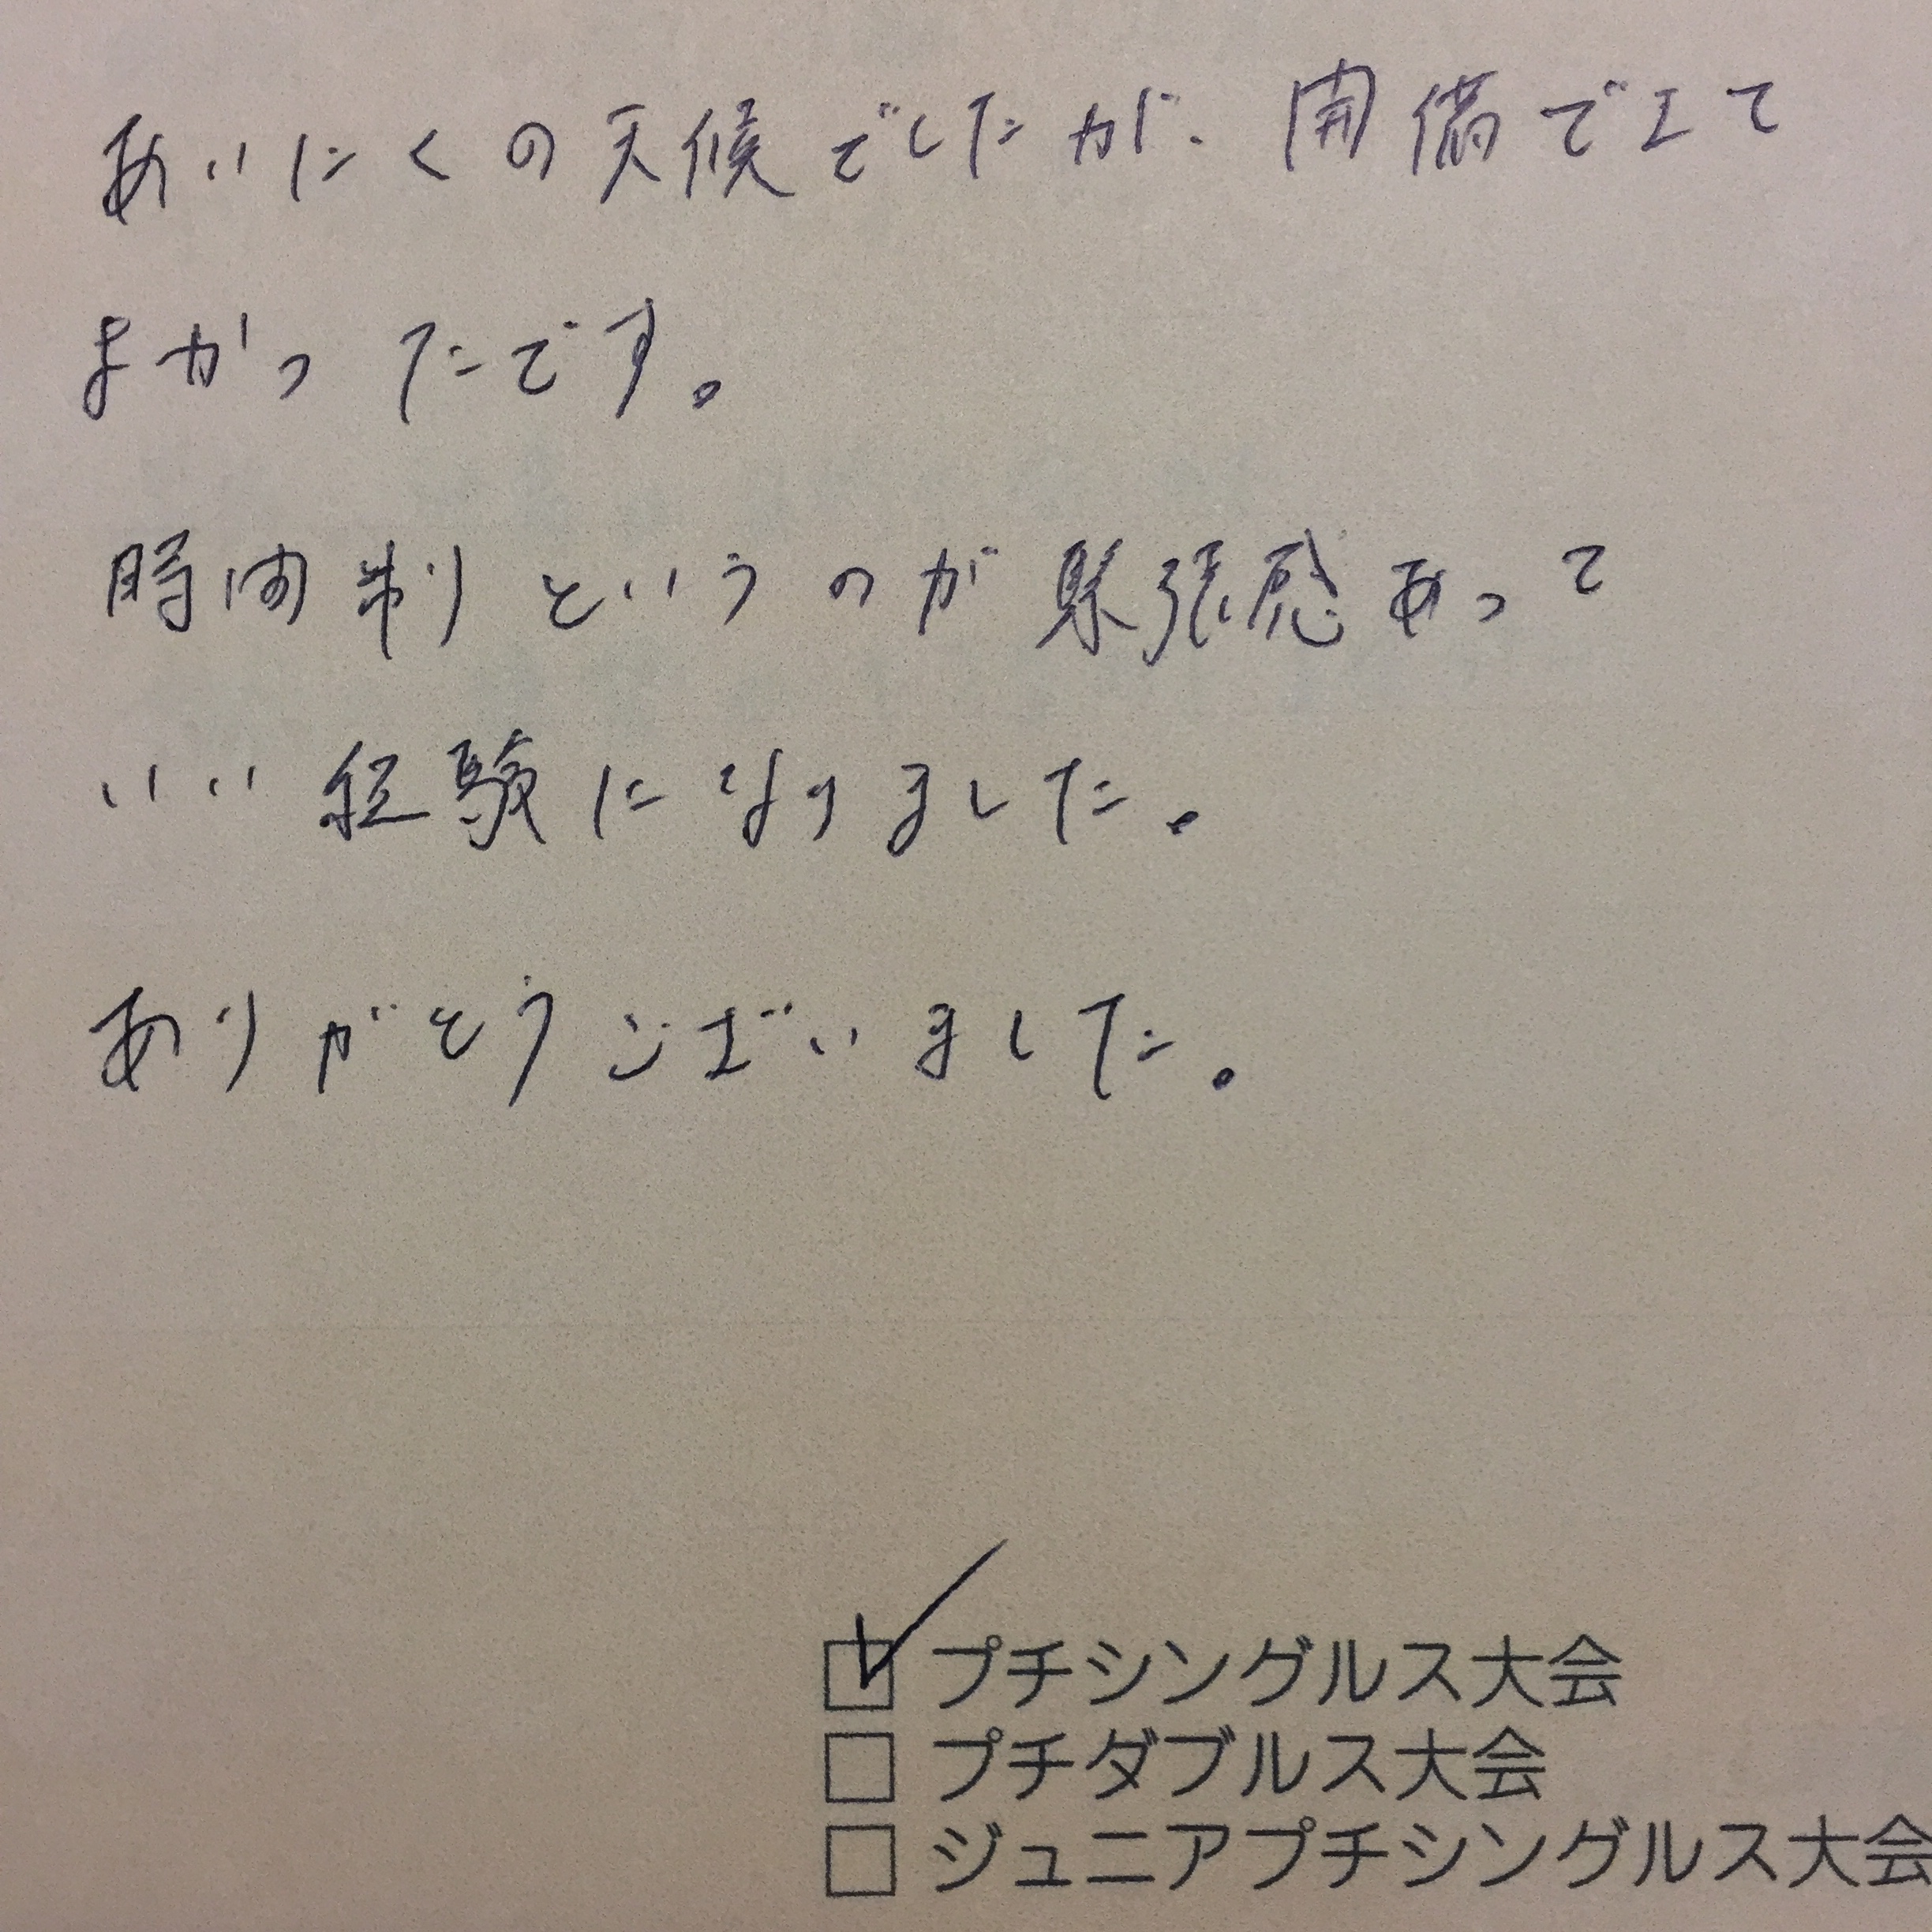 あいにくの天候でしたが、開備できて
よかったです。
時間制というのが緊張感あって
いい経験になりました。
ありがとうございました。
プチシングルス大会
プチダブルス大会
ジュニアプチシングルス大会